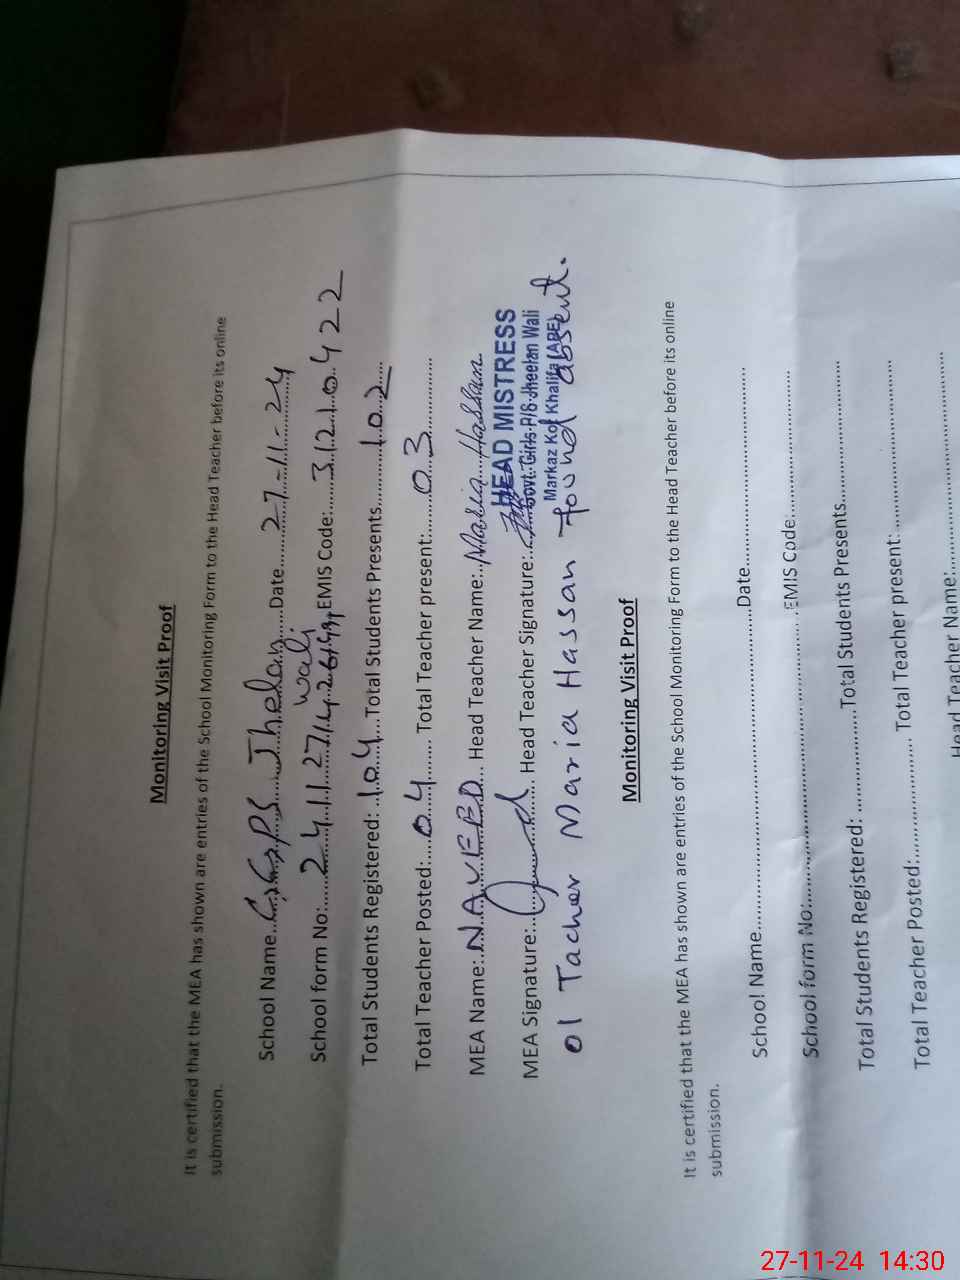 Monitoring Visit Proof
It is certified that the MEA has shown are entries of the School Monitoring Form to the Head Teacher before its online
submission.
School Name...GGPS Jhelan wali......Date..........27-11-24
School form No:... EMIS Code:......31210422
Total Students Registered: .104....Total Students Presents..........102
Total Teacher Posted:....04........ Total Teacher present:.......03............
MEA Name:..NAVEED... Head Teacher Name:..Maria Hassan
MEA Signature:............ Head Teacher Signature:..
HEAD MISTRESS
Govt. Girls P/S Jheelan Wali
Markaz Kot Khalifa (APE)
01 Tacher Maria Hassan found absent.
Monitoring Visit Proof
It is certified that the MEA has shown are entries of the School Monitoring Form to the Head Teacher before its online
submission.
School Name..................................................................Date..........................................
School form No:..............................................................EMIS Code:..............................
Total Students Registered: .....................Total Students Presents.............................
Total Teacher Posted:......................... Total Teacher present:...................................
Head Teacher Name:..............................................
27-11-24 14:30